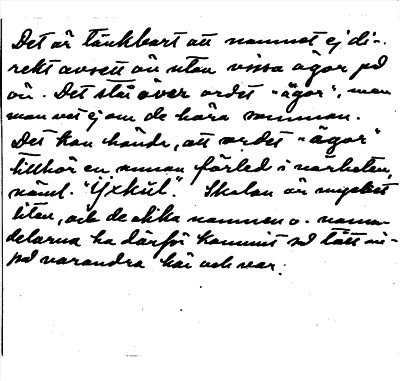 Det är tänkbart att namnet ej di-
rekt avsett ön utan vissa ägor på
ön. Det står över ordet "ägor", men
man vet ej om de höra samman.
Det kan hända, att ordet "ägor"
tillhör en annan förled i närheten,
nämł. "Yxkul". Skalan är mycket
liten, och de olika namnen o. namn-
delarna ha därför kommit så tätt in-
på varandra här och var.